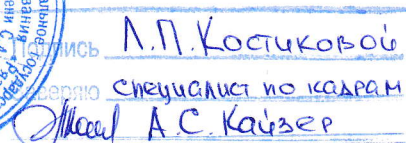 Подпись Л.П.Костиковой
заверяю специалист по кадрам
А.С. Кайзер